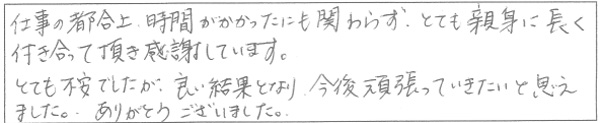 仕事の都合上、時間がかかったにも関わらず、とても親身に長く
付き合って頂き感謝しています。
とても不安でしたが、良い結果となり、今後頑張っていきたいと思え
ました。ありがとうございました。